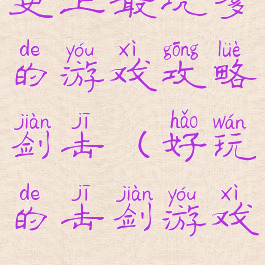 史上最坑爹
de yóu xì gōng lüè
的游戏攻略
jiàn jī hǎo wán
剑击（好玩
de jī jiàn yóu xì
的击剑游戏